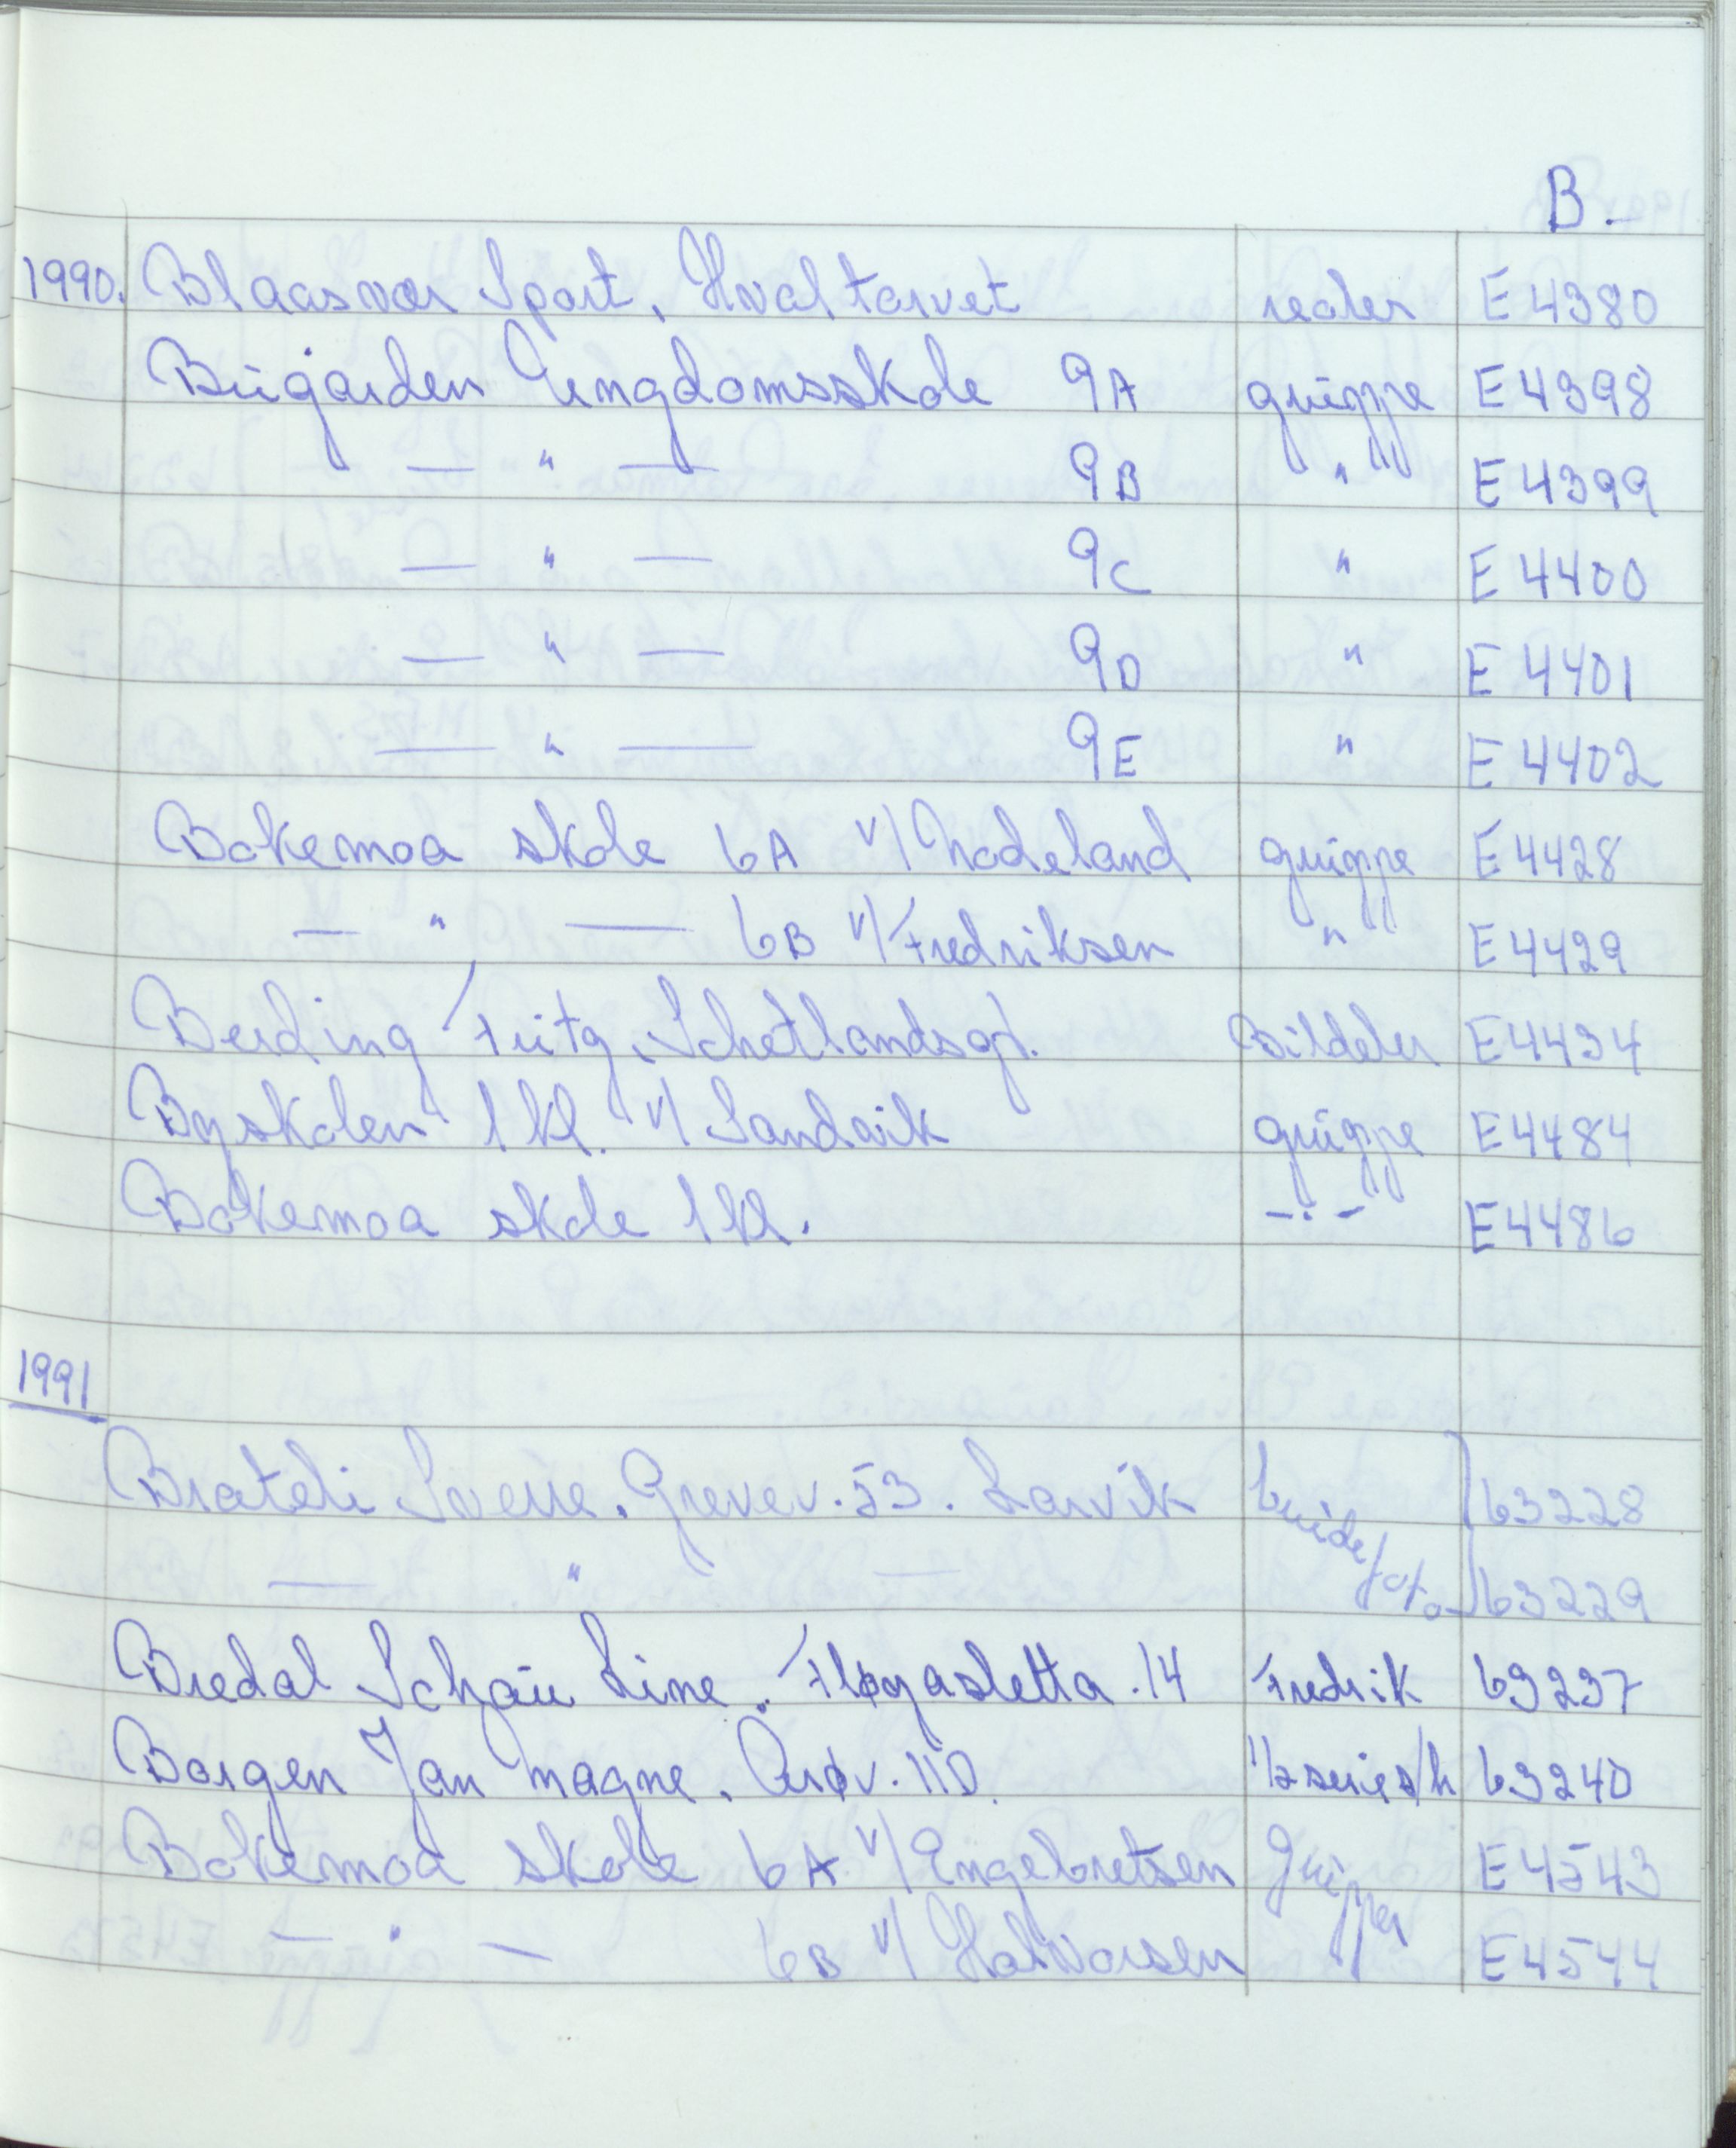 B.
1990. Blaasvær Sport, Hvaltorvet recler E 4380
Bugården Ungdomsskole 9A gruppe E 4398
— " — 9B " E 4399
— " — 9C " E 4400
— " — 9D " E 4401
— " — 9E " E 4402
Bokemoa skole 6A v/ Nodeland gruppe E 4428
— " — 6B v/ Fredriksen " E 4429
Berding Fritz, Schetlandsgt. Bildeler E 4434
Byskolen 1 kl. v/ Sandvik gruppe E 4484
Bokemoa skole 1 kl. -:- E 4486
1991
Brateli Sverre. Grevev. 53. Larvik brudefoto 63228
— " — 63229
Bredal Schau Line. Fløyasletta. 14 Fredrik 63237
Borgen Jan Magne. Perøv. 11D. 1/2 series/h 63240
Bokemoa skole 6A v/ Engebretsen Grupper E 4543
— " — 6B v/ Halvorsen E 4544